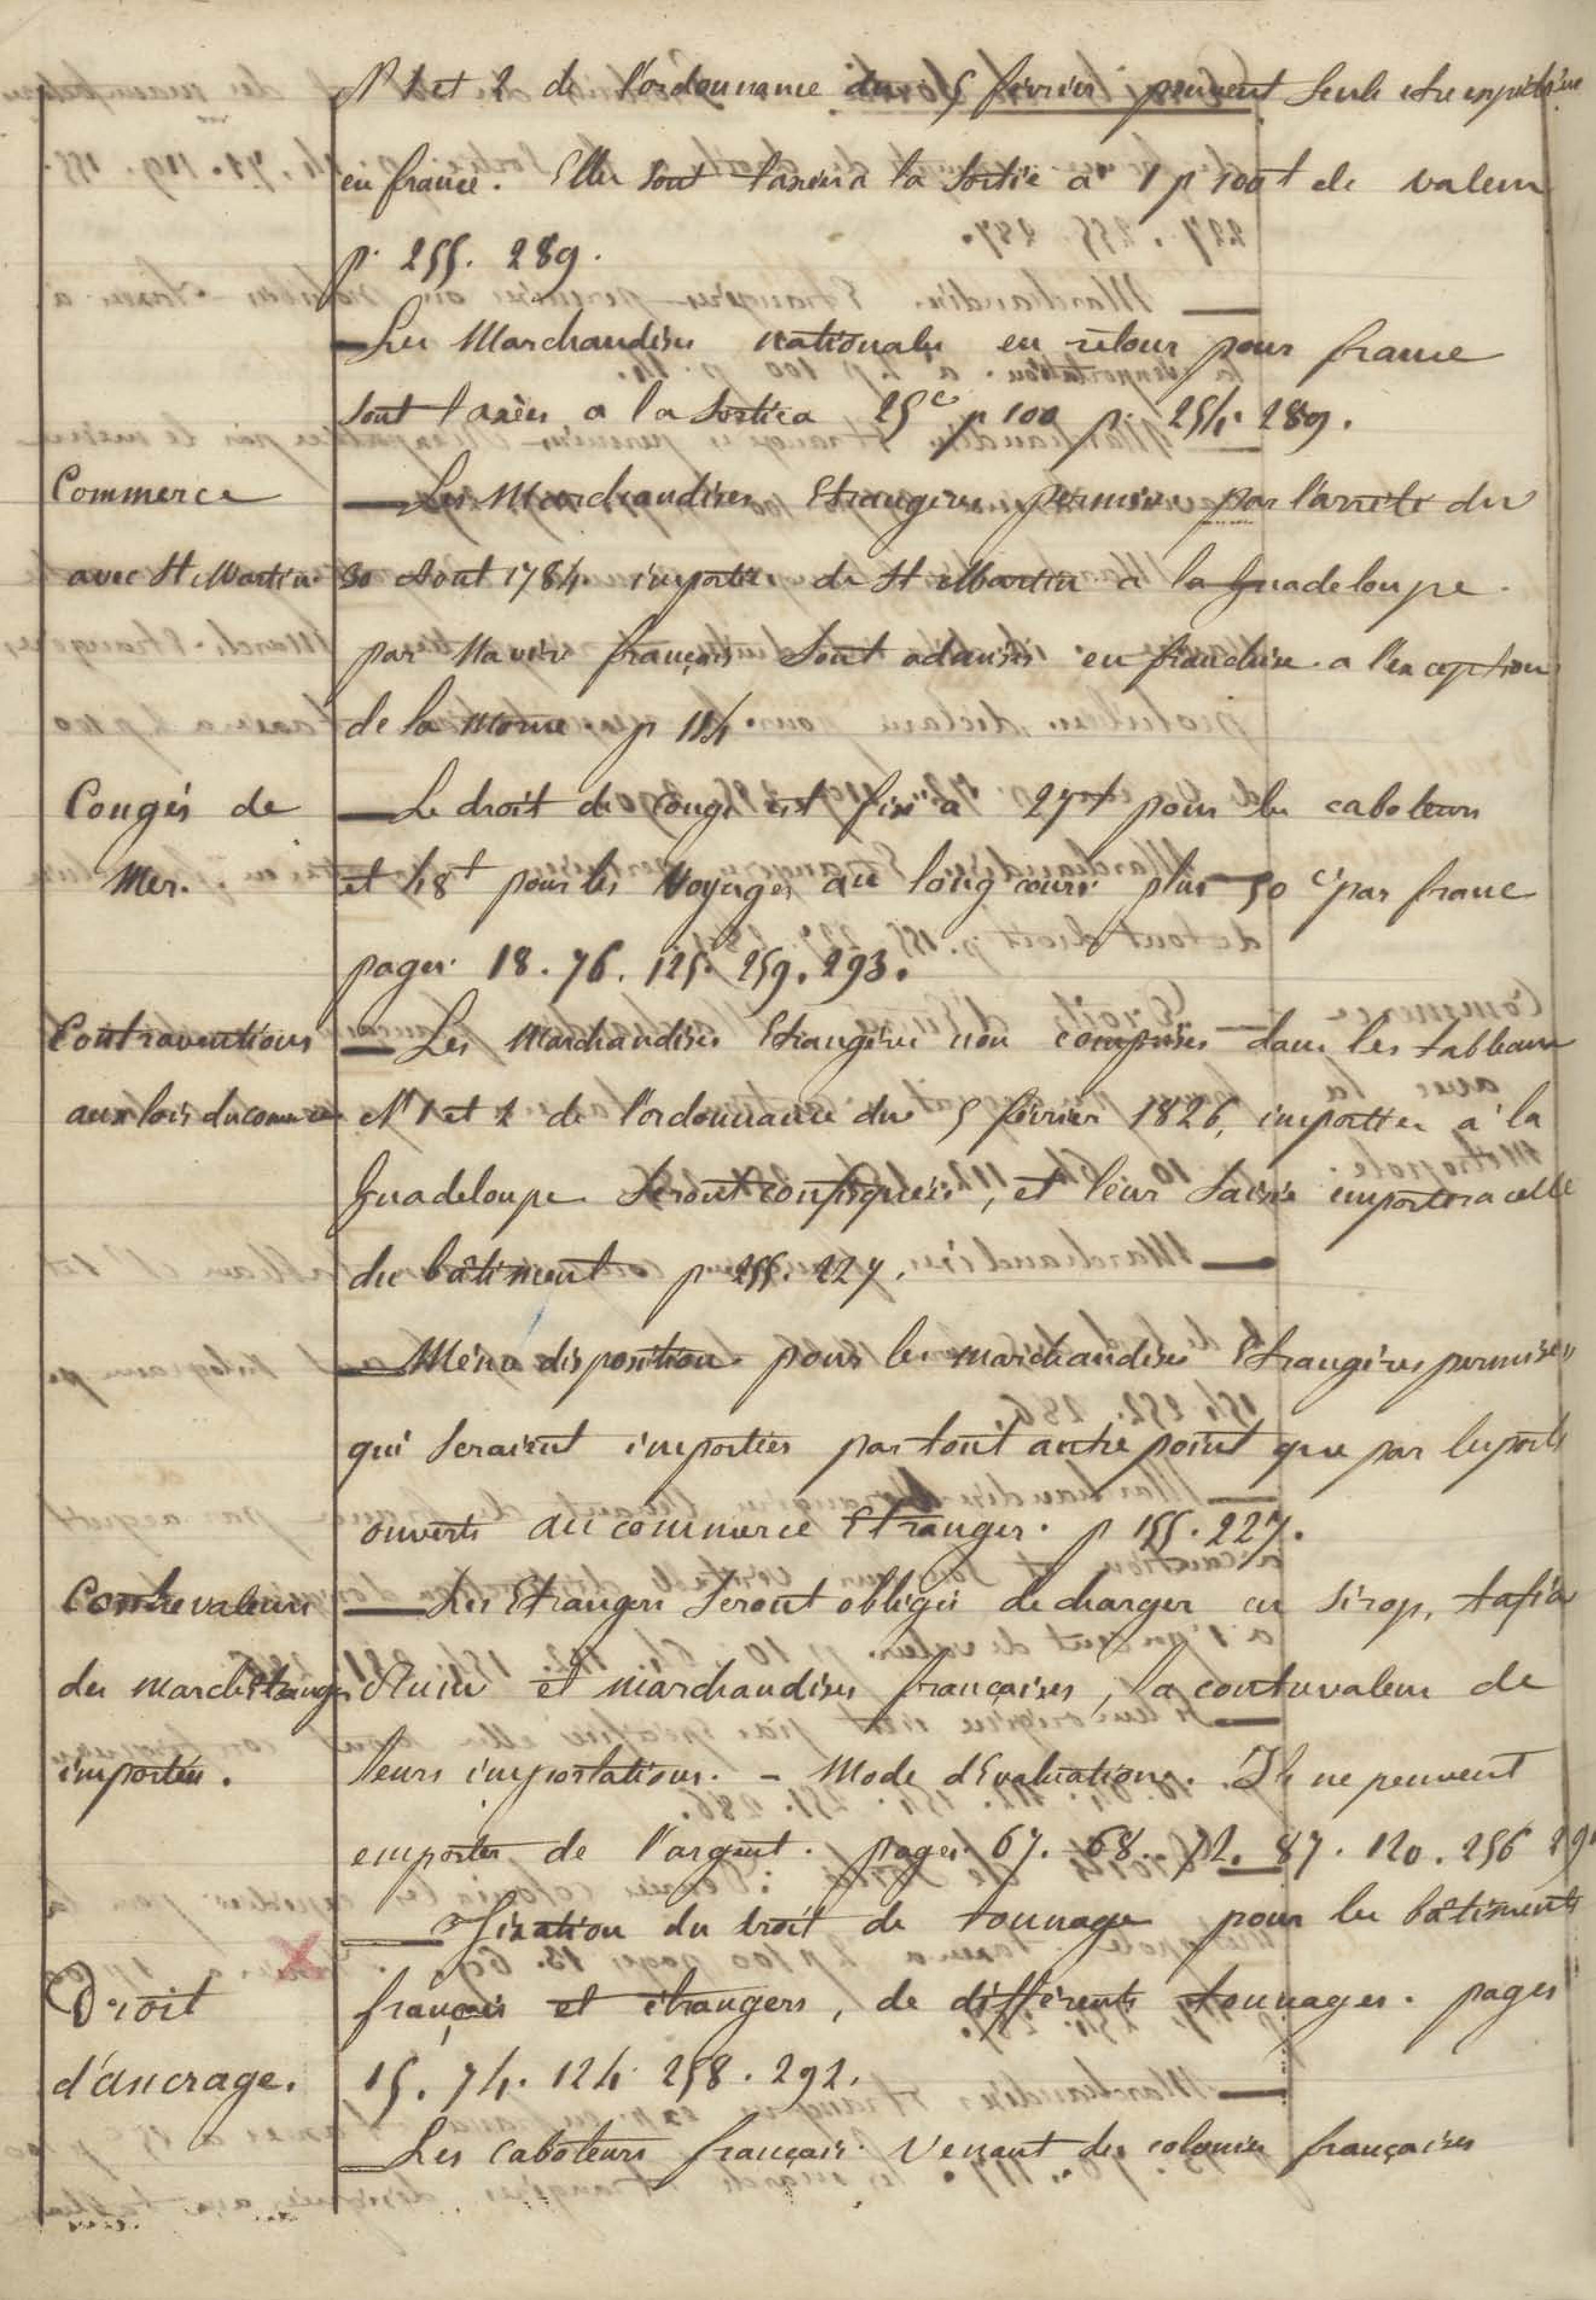 N° 1 et 2 de l'ordonnance du 5 février peuvent seules etre expédiées
en france. Elles sont taxées a la sortie à 1 p 100 de valeur
p. 255. 289.
— Les Marchandises nationales en retour pour france
sont taxées a la sortie a 25c p 100 p. 254. 289.
Commerce — Les Marchandises Etrangères permises par l'arrêté du
avec St Martin 30 Aout 1784 importées de St Martin a la Guadeloupe
par Navire français sont admises en franchise a l'exception
de la Morue p 114
Congés de — Le droit de congé est fixé a 27f pour les caboteurs
Mer. et 48f pour les Voyages au long cours plus 50 c par franc
pages 18. 76. 125. 259. 293.
Contraventions — Les Marchandises Etrangères non comprises dans les tableaux
aux lois du commerce N° 1 et 2 de l'ordonnance du 5 février 1826, importées a la
Guadeloupe seront confisquées, et leur saisie importera celle
du bâtiment p 155. 227.
— Même disposition pour les marchandises Etrangères permises
qui seraient importées par tout autre point que par les ports
ouverts au commerce Etranger. p 155. 227.
Contrevaleurs — Les Etrangers seront obligés de charger en sirop, tafia
des march. Etrangères Rum et marchandises françaises, la contrevaleur de
importées. leurs importations. - Mode d'Evaluation. Ils ne peuvent
emporter de l'argent. pages 67. 68. 72. 87. 120. 256
— Fixation du droit de tonnage pour les bâtiments
Droit français et étrangers, de différents tonnages. pages
d'ancrage. 15. 74. 124. 258. 292.
— Les caboteurs français venant des colonies françaises